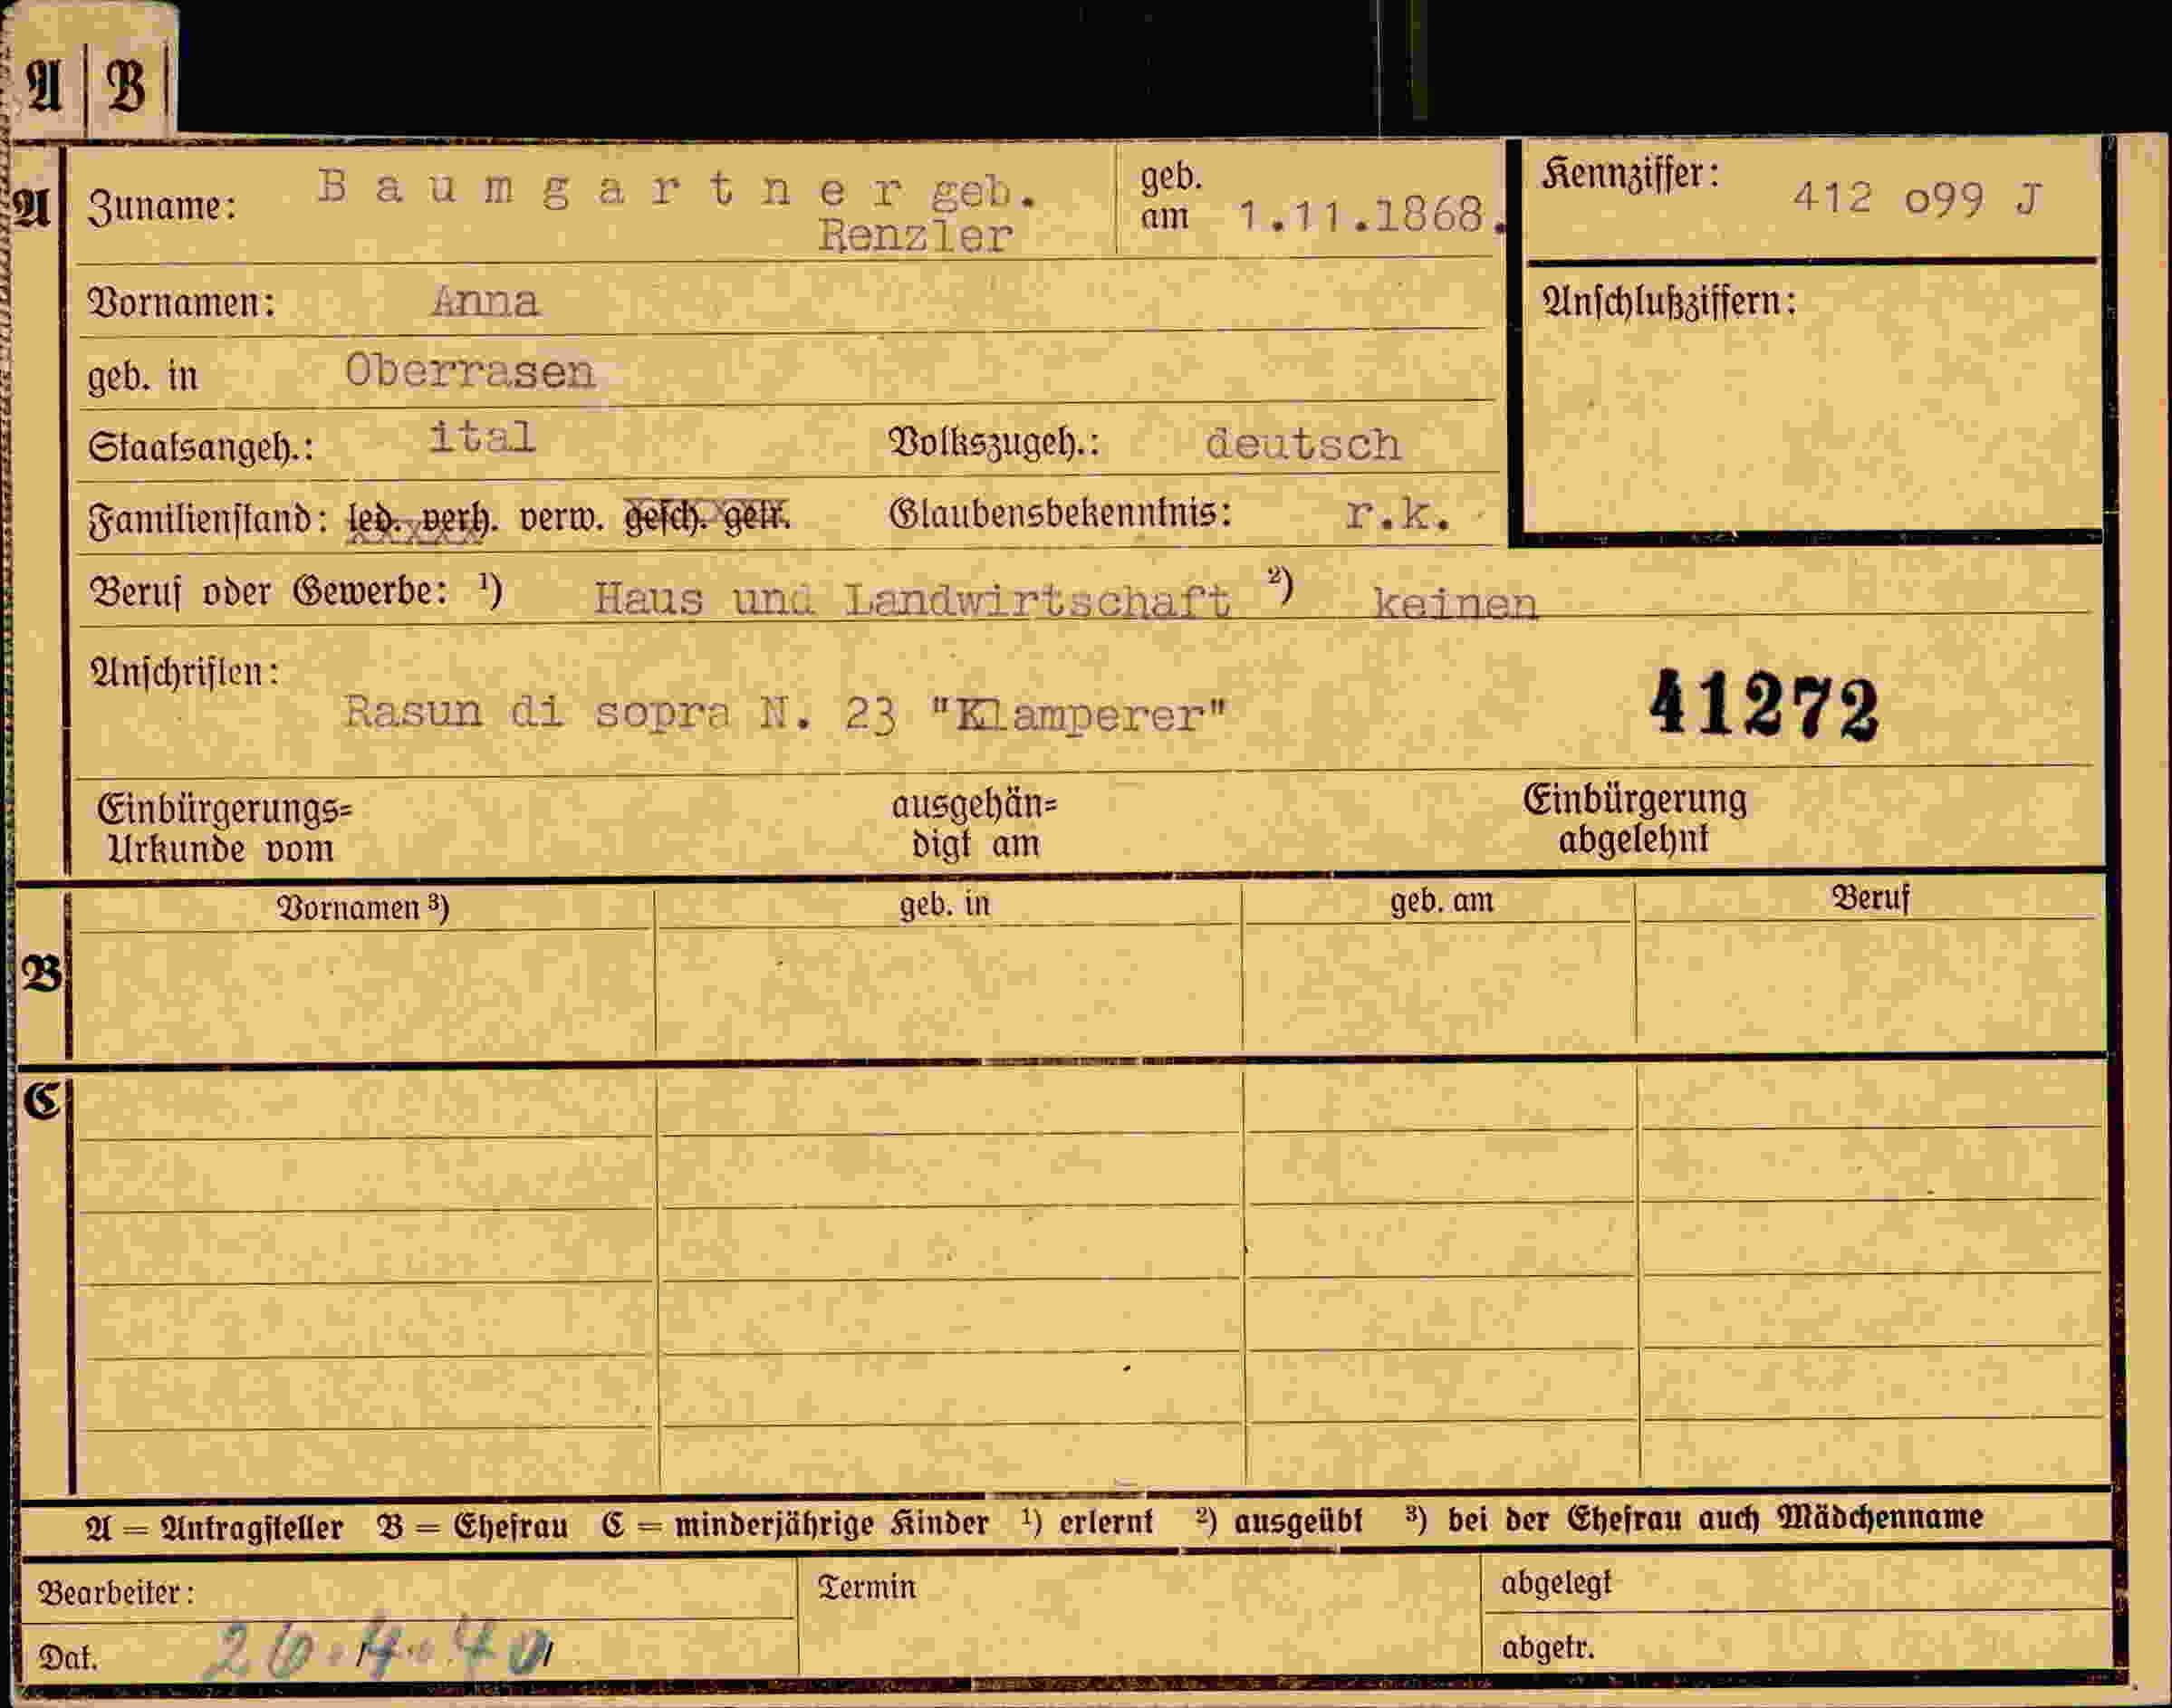 A B
A
Zuname: Baumgartner geb.
Renzler
geb.
am 1.11.1868.
Kennziffer: 412 o99 J
Vornamen: Anna
Anschlußziffern:
geb. in Oberrasen
Staatsangeh.: ital Volkszugeh.: deutsch
Familienstand: led. verh. verw. gesch. getr. Glaubensbekenntnis: r.k.
Beruf oder Gewerbe: ¹) Haus und Landwirtschaft ²) keinen
Anschriften:
Rasun di sopra N. 23 "Klamperer"
41272
Einbürgerungs=
Urkunde vom
ausgehän=
digt am
Einbürgerung
abgelehnt
Vornamen ³) geb. in geb. am Beruf
B
C
A = Antragsteller B = Ehefrau C = minderjährige Kinder ¹) erlernt ²) ausgeübt ³) bei der Ehefrau auch Mädchenname
Bearbeiter: Termin abgelegt
Dat. 26.4.40 abgetr.